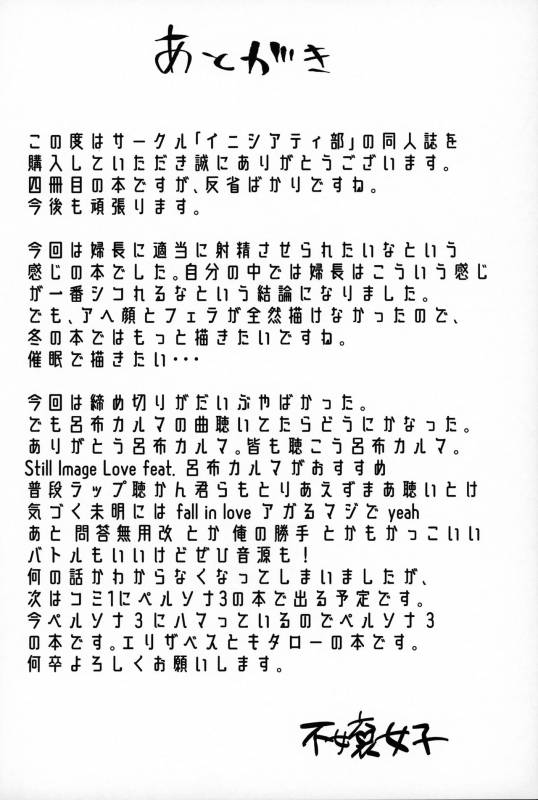 あとがき
この度はサークル「イニシアティ部」の同人誌を
購入していただき誠にありがとうございます。
四冊目の本ですが、反省ばかりですね。
今後も頑張ります。
今回は婦長に適当に射精させられたいなという
感じの本でした。自分の中では婦長はこういう感じ
が一番シコれるなという結論になりました。
でも、アヘ顔とフェラが全然描けなかったので、
冬の本ではもっと描きたいですね。
催眠で描きたい・・・
今回は締め切りがだいぶやばかった。
でも呂布カルマの曲聴いてたらどうにかなった。
ありがとう呂布カルマ。皆も聴こう呂布カルマ。
Still Image Love feat. 呂布カルマがおすすめ
普段ラップ聴かん君らもとりあえずまあ聴いとけ
気づく未明には fall in love アガるマジで yeah
あと 問答無用改 とか 俺の勝手 とかもかっこいい
バトルもいいけどぜひ音源も!
何の話かわからなくなってしまいましたが、
次はコミ1にペルソナ3の本で出る予定です。
今ペルソナ3にハマっているのでペルソナ3
の本です。エリザベスとキタローの本です。
何卒よろしくお願いします。
女子